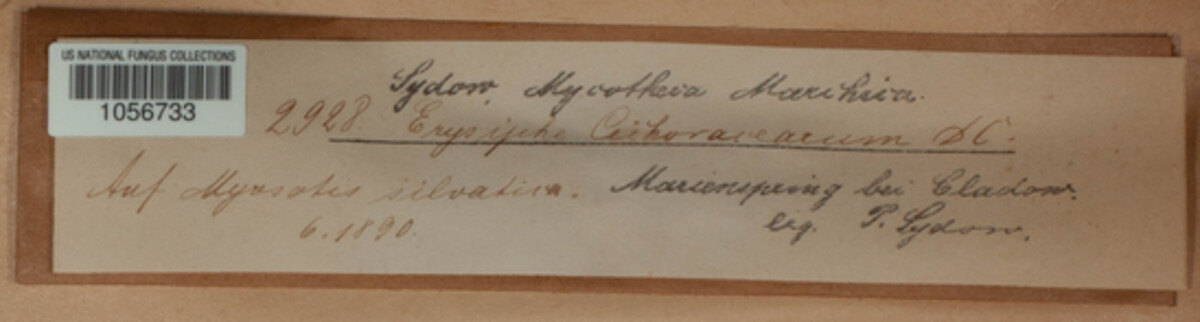 US NATIONAL FUNGUS COLLECTIONS
1056733
Sydow, Mycotheca Marchica.
2928. Erysiphe Cichoracearum DC.
Auf Myosotis silvatica. Marienspring bei Cladow.
6. 1890. leg. P. Sydow.